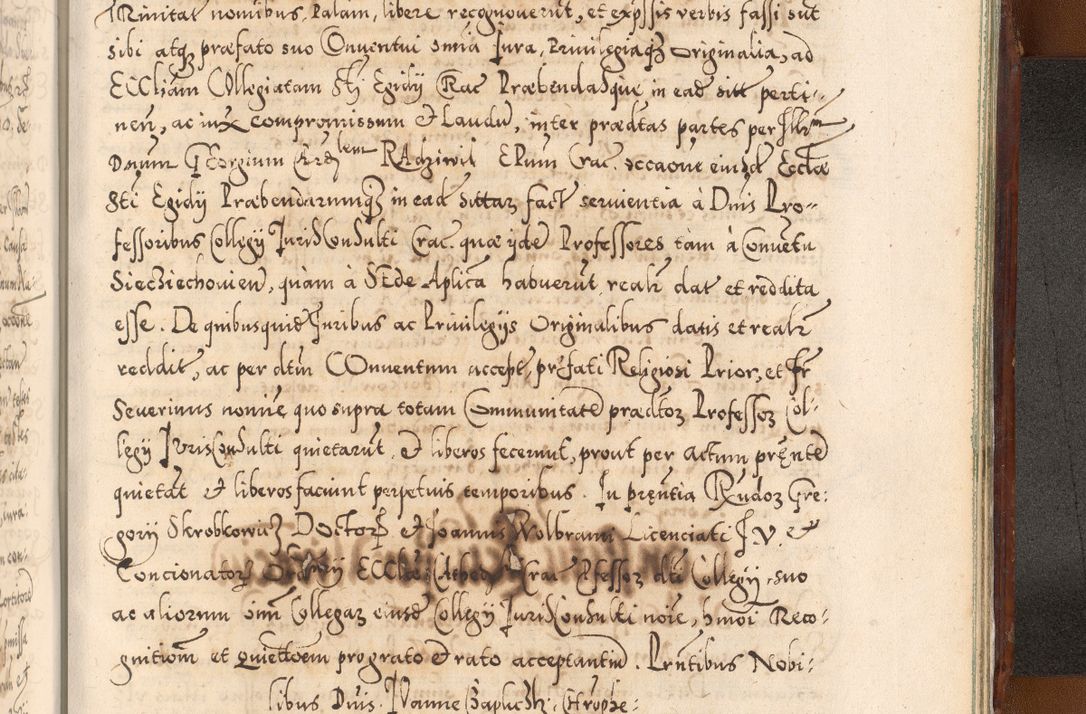 Trinitat nominibus, Palam, libere recognoverūt, et expssis verbis fassi sūt
sibi atq præfato suo Conventui omnia Jura, Privilegiaq Originalia, ad
Eccliam Collegiatam Sti Egidij Crac Præbendasque in ead sitt perti-
nen, ac iux compromissum et Laudū, inter prædtas partes per Illrm
Dnum Georgium Cardlem Radziwil Epum Crac. occaone eiusd Eccliæ
Sti Egidij Præbendarumq in ead sittarz fact servientia à Dnis Pro-
fessoribus Collegij JurisConsulti Crac. quæ ijde Professores tàm à Convetu
Sieciechovien, quàm à Sede Aplica habuerūt, realr dat et reddita
esse. De quibusquid Juribus ac Privilegijs Originalibus datis et realr
reddit, ac per dtm Conventum accept, præfati Religiosi Prior, et Fr
Severinus nomie, quo supra totam Communitate prædtorz Professorz Col-
legij JurisConsulti quietarūt, et liberos fecerunt, prout per actum præntē
quietāt et liberos faciunt perpetuis temporibus. In præntia Rndorz Gre:
gorij Skrobkowicz Doctoris et Joannis Wolbram Licenciati J V. et
Concionatoris Ordrij Eccliæ Cathed Crac Pfessorz dti Collegij, suo
ac aliorum oim Collegarz eiusd Collegij JurisConsulti noie, hmoi Reco-
gnitiom et Quiettoem pro grato et rato acceptantiū. Prntibus Nobi:
libus Dnis. Joanne